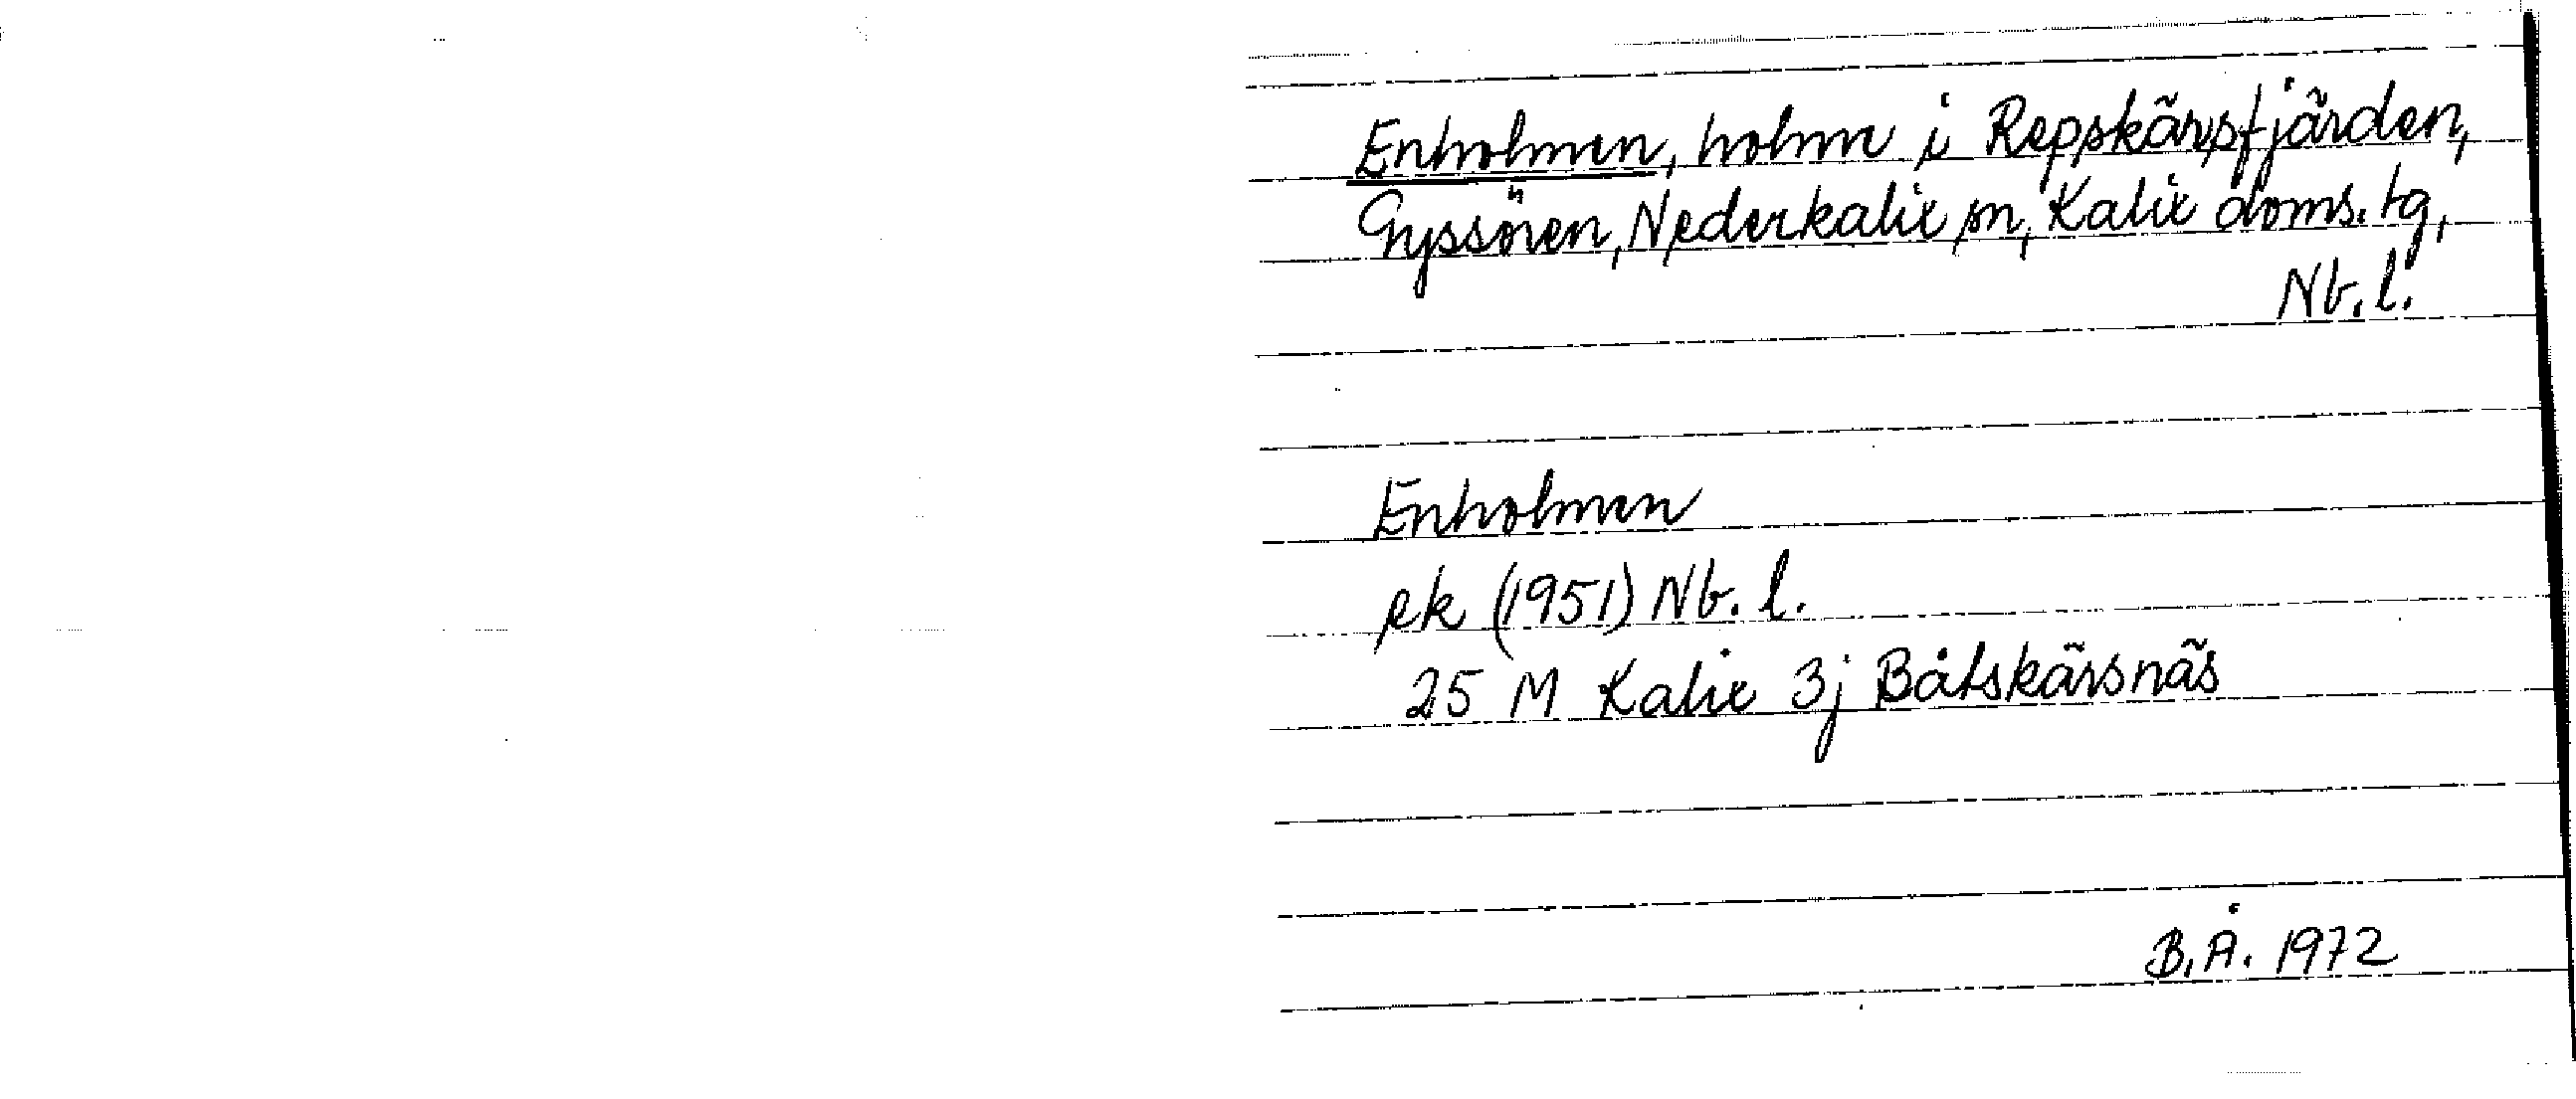 Enholmen, holme i Repskärsfjärden,
Gyssören, Nederkalix sn, Kalix doms. tg,
Nb. l.
Enholmen
ek (1951) Nb. l.
25 M Kalix 3j Båtskärsnäs
B.Å. 1972